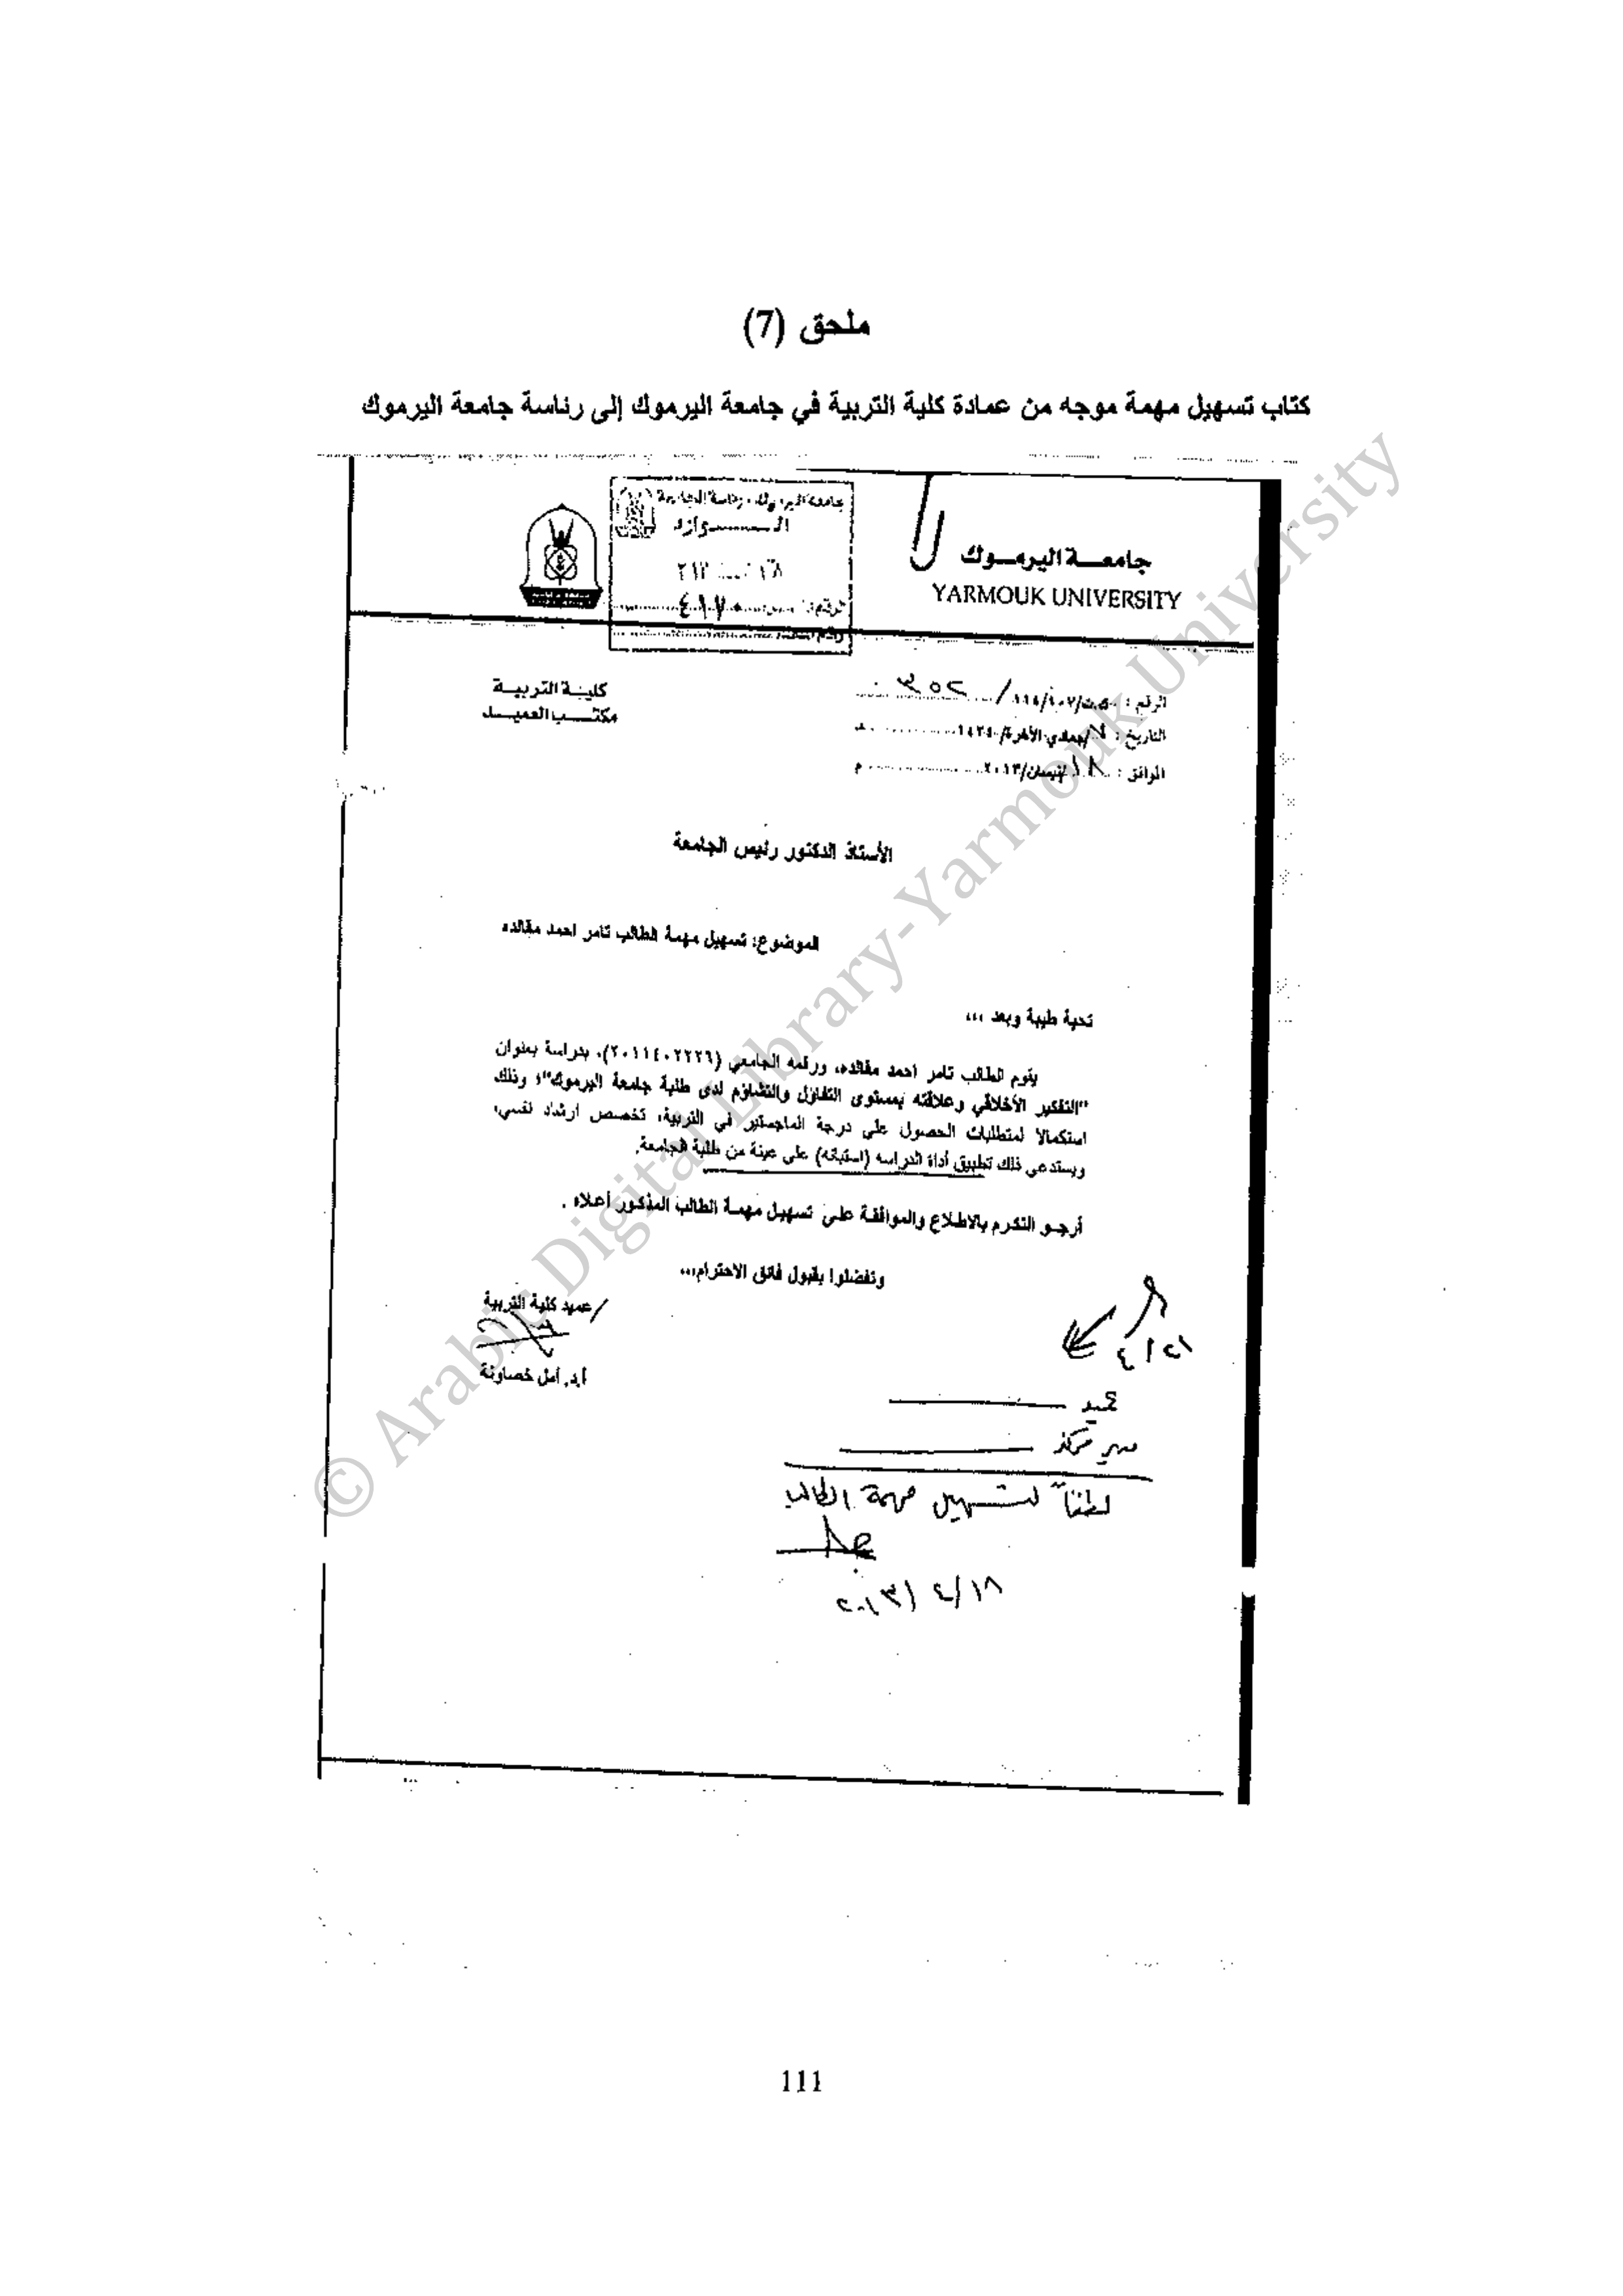 ملحق (7)
كتاب تسهيل مهمة موجه من عمادة كلية التربية في جامعة اليرموك إلى رئاسة جامعة اليرموك
جامعة اليرموك
YARMOUK UNIVERSITY
جامعة اليرموك رئاسة الجامعة
الوارد
كلية التربية
مكتب العميد
الرقم : ك.ت/١٠٧/
التاريخ : /جمادي الآخرة/
الموافق : ١٨/نيسان/٢٠١٣ م
الأستاذ الدكتور رئيس الجامعة
الموضوع: تسهيل مهمة الطالب تامر احمد مقالده
تحية طيبة وبعد ،،،
يقوم الطالب تامر احمد مقالده، ورقمه الجامعي (٢٠١١٤٠٢٢٢٦)، بدراسة بعنوان
"التفكير الأخلاقي وعلاقته بمستوى التفاؤل والتشاؤم لدى طلبة جامعة اليرموك"؛ وذلك
استكمالا لمتطلبات الحصول على درجة الماجستير في التربية، تخصص ارشاد نفسي،
ويستدعي ذلك تطبيق أداة الدراسه (استبانه) على عينة من طلبة الجامعة.
أرجو التكرم بالاطلاع والموافقة على تسهيل مهمة الطالب المذكور أعلاه .
وتفضلوا بقبول فائق الاحترام،،،
/عميد كلية التربية
أ.د. أمل خصاونة
٤/٢١
عميد
مدير مركز
لطفاً لتسهيل مهمة الطالب
٢٠١٣/٤/١٨
© Arabic Digital Library-Yarmouk University
111